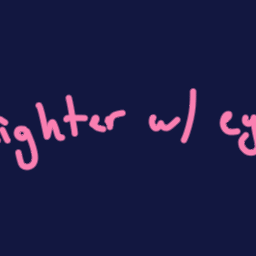 ighter w/ ey